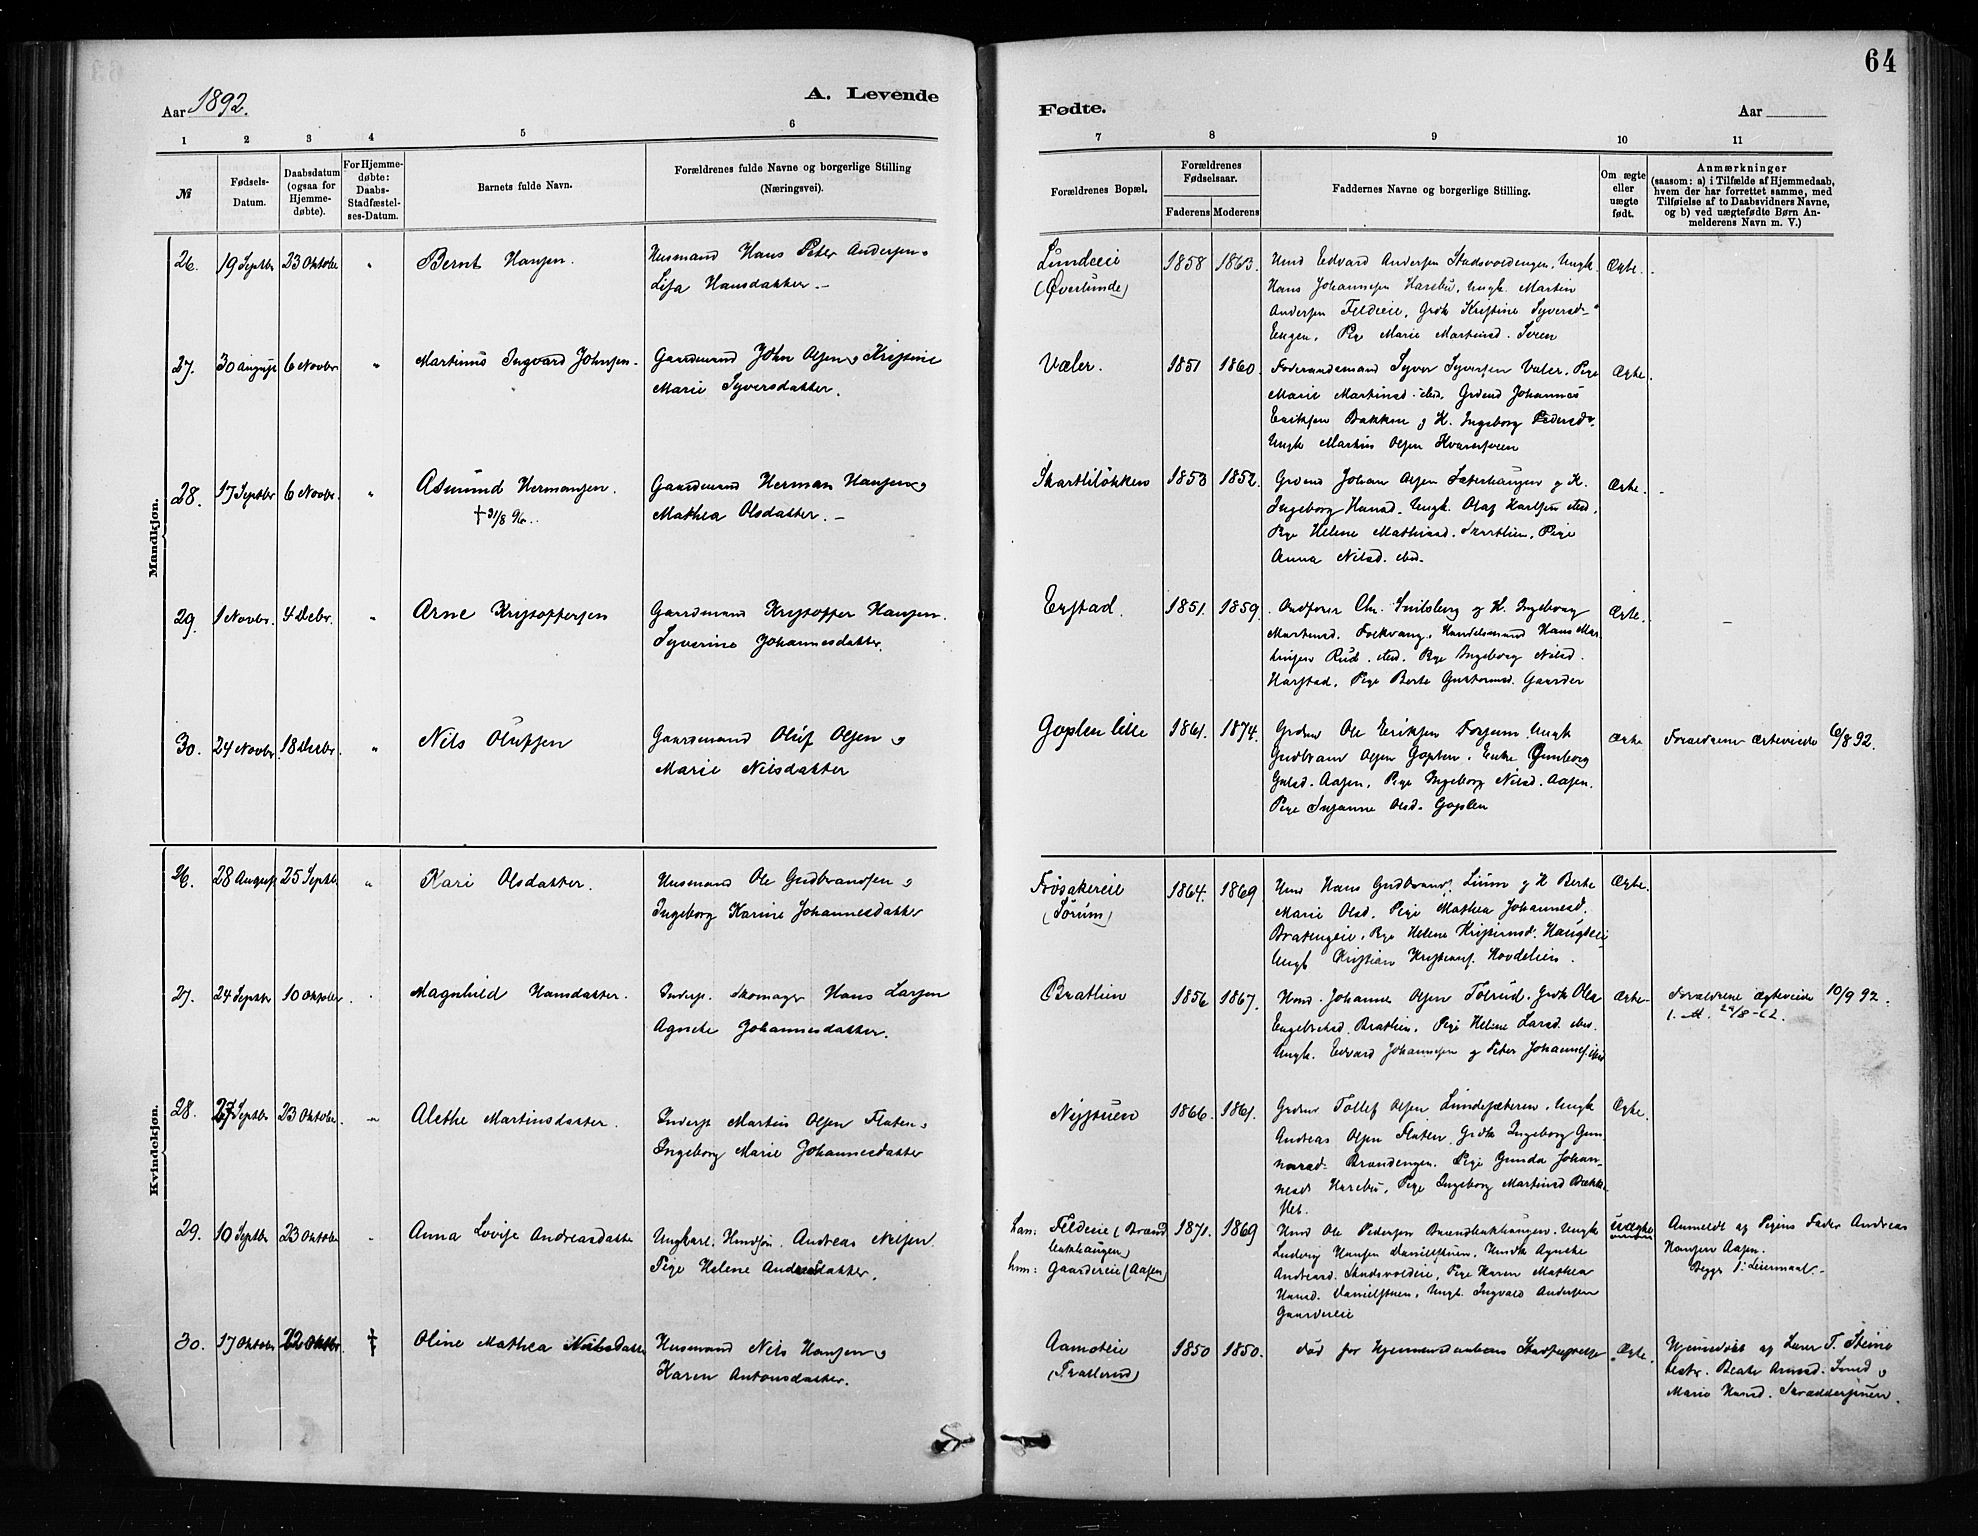 64
Aar 1892.
A. Levende
Fødte.
Aar
1 2 3 4 5 6
7 8 9 10 11
№
Fødsels-
Datum.
Daabsdatum
(ogsaa for
Hjemme-
døbte).
For Hjemme-
døbte:
Daabs-
Stadfæstel-
ses-Datum.
Barnets fulde Navn.
Forældrenes fulde Navne og borgerlige Stilling
(Næringsvei).
Forældrenes Bopæl.
Forældrenes
Fødselsaar.
Faderens Moderens
Faddernes Navne og borgerlige Stilling.
Om ægte
eller
uægte
født.
Anmærkninger
(saasom: a) i Tilfælde af Hjemmedaab,
hvem der har forrettet samme, med
Tilføielse af to Daabsvidners Navne,
og b) ved uægtefødte Børn An-
melderens Navn m. V.)
Mandkjøn.
26. 19 Septbr 23 Oktober " Bernt Hansen.
Husmand Hans Peter Andersen og
Lisa Hansdatter. –
Lundeeie
(Øverlunde)
1858 1863.
Hmd Edvard Andersen Stadsvoldengen, Ungk.
Hans Johannesen Harebu, Ungk. Martin
Andersen Feldeie, Grdk Kristine Syversd-
Engen, Pige Marie Martinsd. Sveen
Ægte.
27. 30 August 6 Novbr " Martinus Ingvard Johnsen.
Gaardmand John Olsen og Kristine
Marie Syversdatter.
Væler.
1851 1860.
Foderaadsmand Syver Syversen Væler, Pige
Marie Martinsd. ibid, Grdmd Johannes
Eriksen Bakken og K. Ingeborg Pedersdr.
Ungk Martin Olsen Kværnsveen
Ægte.
28. 17 Septbr 6 Novbr. " Asmund Hermansen.
† 31/8 96..
Gaardmand Herman Hansen og
Mathea Olsdatter. –
Skartliløkken
1853 1852.
Grdmd Johan Olsen Sæterhaugen og K.
Ingeborg Hansd. Ungk. Olaf Karlsen sted.
Pige Helene Mathiasd. Skartlien, Pige
Anna Nilsd. ibid.
Ægte.
29. 1 Novbr. 4 Decbr. " Arne Kristoffersen
Gaardmand Kristoffer Hansen.
Syverine Johannesdatter.
Erstad.
1851. 1859.
Chr. Snilsberg og K. Ingeborg
Martinsd. Folkvang, Handelsmand Hans Mar-
tinsen Rud. sted. Pige Ingeborg Nilsd.
Harstad, Pige Berte Gustavsd. Gaarder
Ægte.
30. 24 Novbr. 18 Decbr. " Nils Olufsen
Gaardmand Oluf Olsen og
Marie Nilsdatter
Goplen lille
1861. 1874.
Grdmd Ole Eriksen Forsum, Ungk
Gudbrand Olsen Goplen, Enke Gunborg
Gulsd. Aasen, Pige Ingeborg Nilsd. Aasen.
Pige Susanne Olsd. Goplen
Ægte
Forældrene ægteviede 6/8 92.
Kvindekjøn.
26. 28 August 25 Septbr. " Kari Olsdatter.
Husmand Ole Gudbrandsen og
Ingeborg Karine Johannesdatter
Frøsakereie
(Sørum)
1864. 1869
Hmd Hans Gudbrands. Lium og K Berte
Marie Olsd. Pige Mathea Johannesd.
Bratengeie, Pige Helene Kristiansd. Haugseie
Ungk Kristian Kristians. Hovdelien.
Ægte.
27. 24 Septbr 10 Oktober. " Magnhild Hansdatter.
Inderst. Skomager Hans Larsen
Agnethe Johannesdatter.
Bratlien
1856 1867.
Hmd. Johannes Olsen Tolrud. Grdk Olea
Engebretsd. Bratlien, Pige Helene Larsd. ibid.
Ungk. Edvard Johannesen og Peter Johannes. ibid
Ægte
Forældrene ægteviede 10/9 92.
28. 27 Septbr 23 Oktober. " Alethe Martinsdatter.
Inderst Martin Olsen Flaten og
Ingeborg Marie Johannesdatter
Nystuen
1866. 1861.
Grdmd Tollef Olsen Lundesæteren. Ungk
Andreas Olsen Flaten, Grdk Ingeborg Gun-
narsd. Brændengen. Pige Gunda Johan-
nesd. Harebu, Pige Ingeborg Martinsd Bække-
flet.
Ægte.
29. 10 Septbr 23 Oktober " Anna Lovise Andreasdatter
Ungkarl, Hmdsøn. Andreas Nilsen.
Pige Helene Andreasdatter.
han: Feldeie (Brænd-
bakhaugen)
hun: Gaardereie (Aasen)
1871. 1869
Hmd Ole Pedersen Brændbakhaugen, Ungk
Ludvig Hansen Danielstuen, Hmdk Agnethe
Andreasd. Stadsvoldeie, Pige Karen Mathea
Hansd. Danielstuen, Ungk. Ingvald Andersen
Gaardereie
Uægte
Anmeldt af Pigens Fader Andreas
Hansen Aasen.
Begges 1ste Leiermaal. –
30. 17 Oktober 22 Oktbr. † Oline Mathea Nilsdatter
Husmand Nils Hansen og
Karen Antonsdatter.
Aamoteie
(Fratlerud)
1850 1850.
død før Hjemmedaabens Stadfæstelse
Ægte.
Hjemmedøbt af Lærer T. Steine
testr. Beate Arnesd. Smed og
Marie Hansd. Skræddersveen.